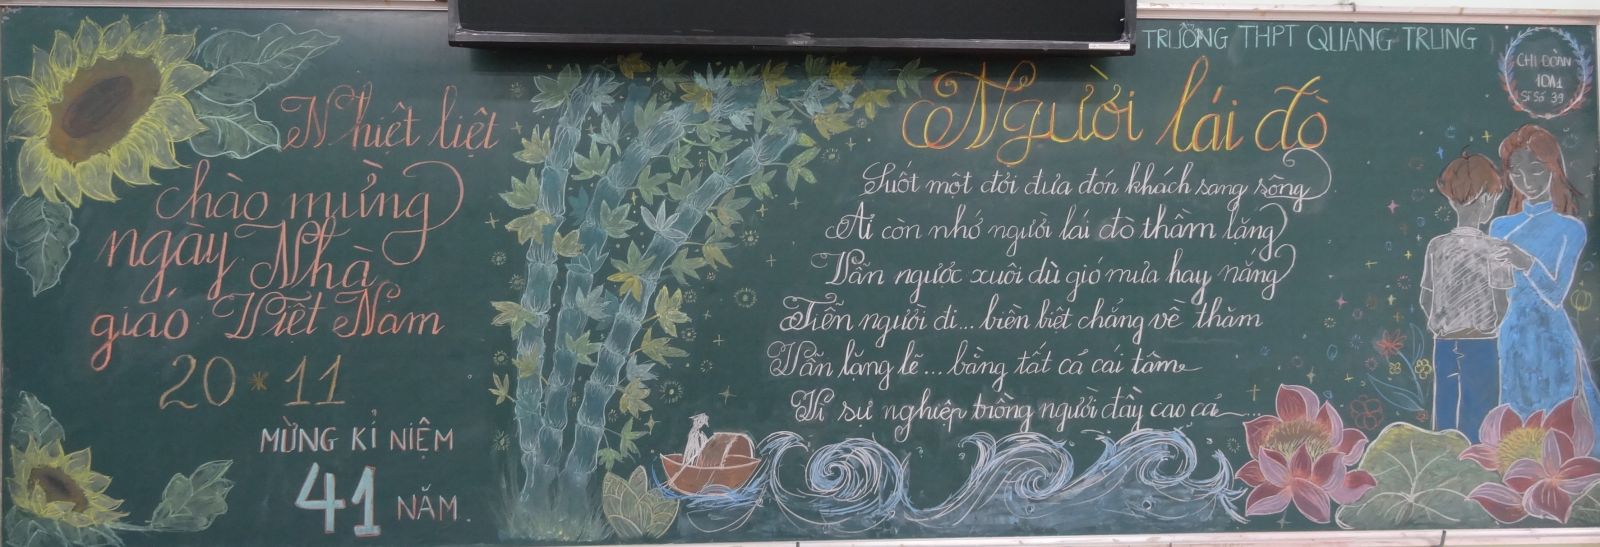 Nhiệt liệt
chào mừng
ngày Nhà
giáo Việt Nam
20 * 11
MỪNG KỈ NIỆM
41 NĂM
TRƯỜNG THPT QUANG TRUNG
CHI ĐOÀN
10A1
Sĩ Số 39
Người lái đò
Suốt một đời đưa đón khách sang sông
Ai còn nhớ người lái đò thầm lặng
Vẫn ngược xuôi dù gió mưa hay nắng
Tiễn người đi... biền biệt chẳng về thăm
Vẫn lặng lẽ... bằng tất cả cái tâm
Vì sự nghiệp trồng người đầy cao cả...